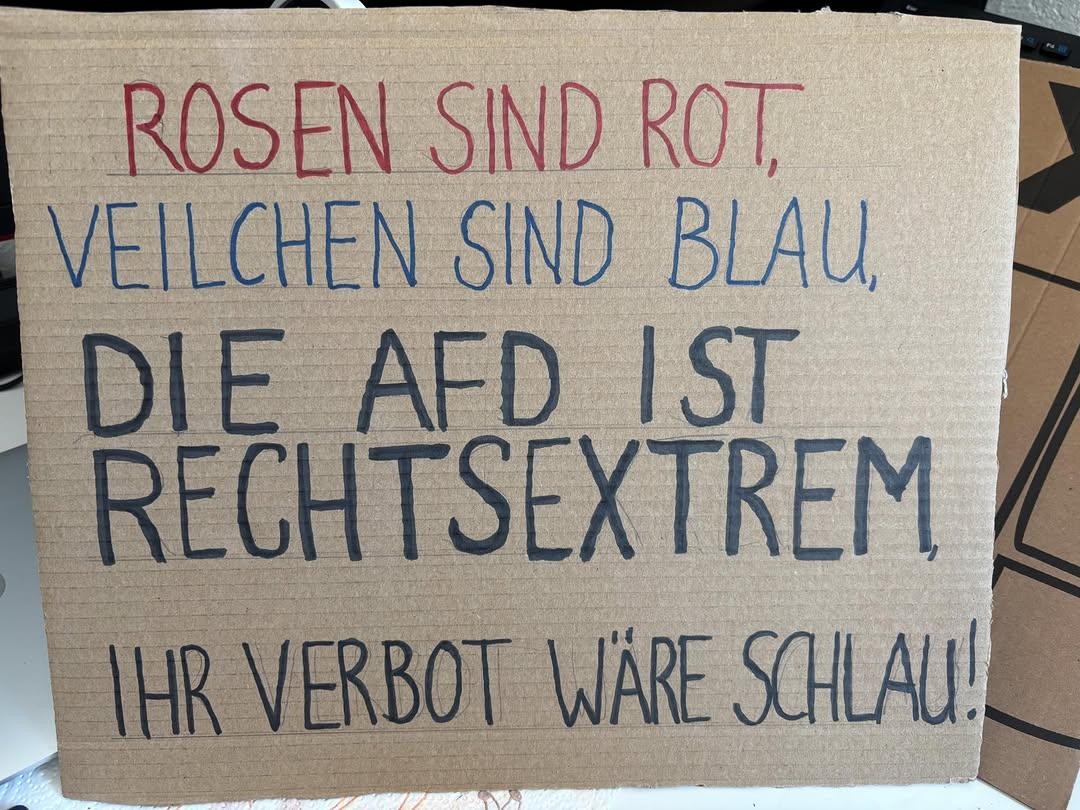 ROSEN SIND ROT,
VEILCHEN SIND BLAU,
DIE AFD IST
RECHTSEXTREM,
IHR VERBOT WÄRE SCHLAU!